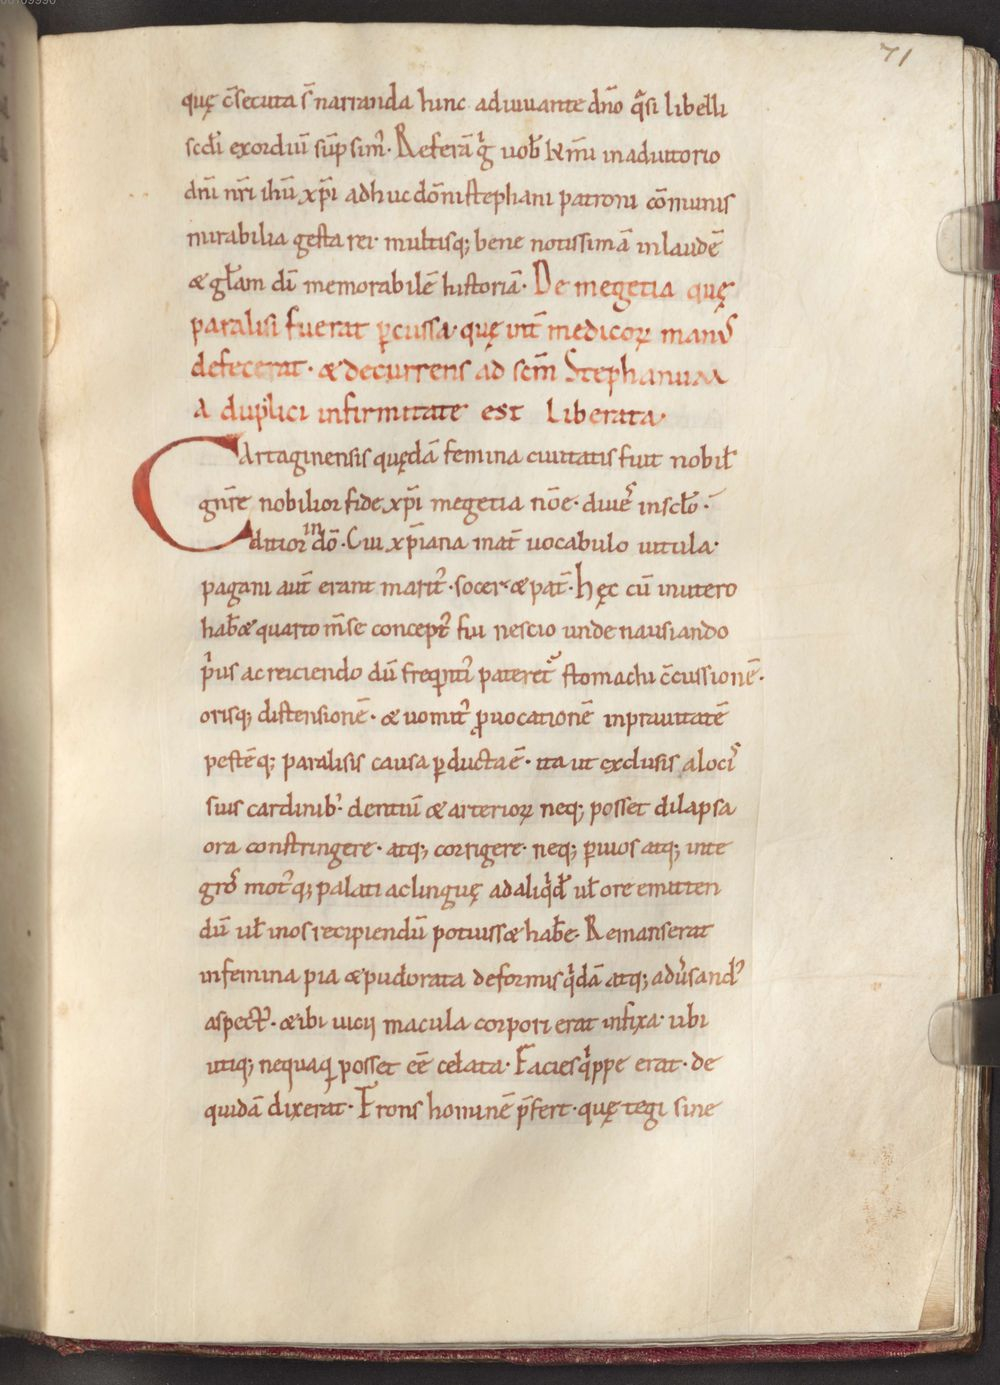 71
quę c̄secuta s̄ narranda hinc adiuuante dn̄o q̄si libelli
scd̄i exordiū sūpsim᷒. Referā g̊ uob̄ kr̄mi in adiutorio
dnī nr̄i ihū xp̄i adhuc dōni stephani patroni cōmunis
mirabilia gesta rei· multisq; bene notissimā in laudē
& głam dī memorabilē historiā. De megetia quę
paralisi fuerat ꝑcussa· quę int̄ medicoꝝ man᷒
defecerat· & decurrens ad scm̄ Stephanum
A duplici infirmitate est Liberata·
CArtaginensis quędā femina ciuitatis fuit nobił
gn̄re nobilior fide xp̄i megetia nōe· diues in scło·
ditior in dō. Cui xp̄iana mat̄ uocabulo uitula·
pagani aut̄ erant marit᷒· socer & pat̄· hęc cū in utero
hab̄& quarto m̄se concept᷒ fui nescio unde nausiando
p̄us ac reiciendo dū freq̄nti᷒ pateret᷒ stomachi c̄cussionē·
orisq; distensionē· & uomit᷒ ꝓuocationē in prauitatē
pestēq; paralisis causa ꝑducta ē· ita ut exclusis a locis
suis cardinib᷒· dentiū & arterioꝝ neq; posset dilapsa
ora constringere· atq; corrigere· neq; ꝑuios atq; inte
gros mot᷒q; palati ac linguę ad aliq̇d uł ore emitten
dū uł in os recipiendū potuiss& hab̄e. Remanserat
in femina pia & pudorata deformis q̇dā atq; aduersand᷒
aspect᷒· & ibi uicij macula corpori erat infixa· ubi
utiq; nequaq̄ posset eē celata· Facies q̇ppe erat· de
quidā dixerat· Frons hominē p̄fert· quę tegi sine